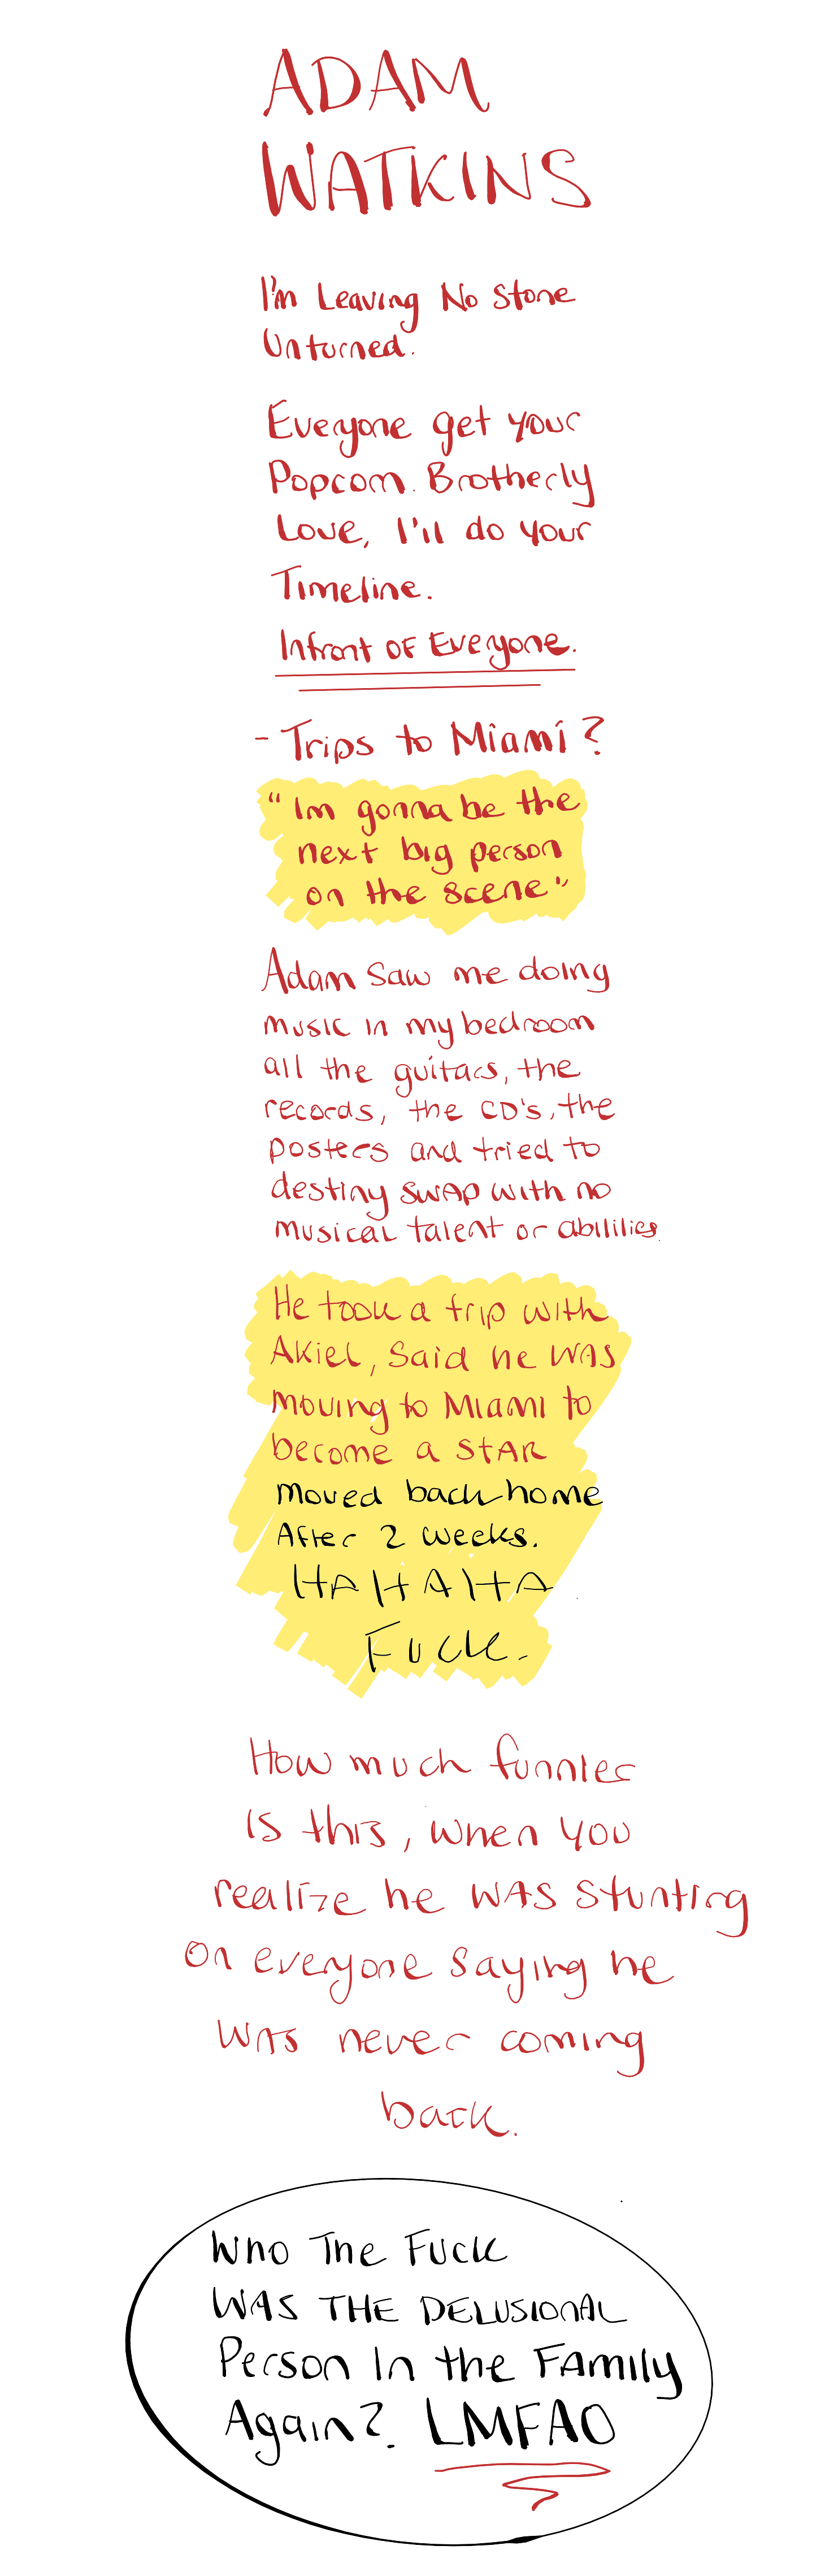 ADAM
WATKINS
I'm Leaving No Stone
Unturned.
Everyone get your
Popcorn. Brotherly
Love, I'll do your
Timeline.
Infront OF Everyone.
- Trips to Miami?
"Im gonna be the
next big person
on the scene"
Adam saw me doing
music in my bedroom
all the guitars, the
records, the CD's, the
posters and tried to
destiny swap with no
musical talent or abilities.
He took a trip with
Akiel, said he was
moving to Miami to
become a STAR
moved back home
After 2 weeks.
HAHAHA
Fuck.
How much funnier
is this, when you
realize he was stunting
on everyone saying he
was never coming
back.
Who The Fuck
WAS THE DELUSIONAL
Person In the FAMILY
Again?. LMFAO